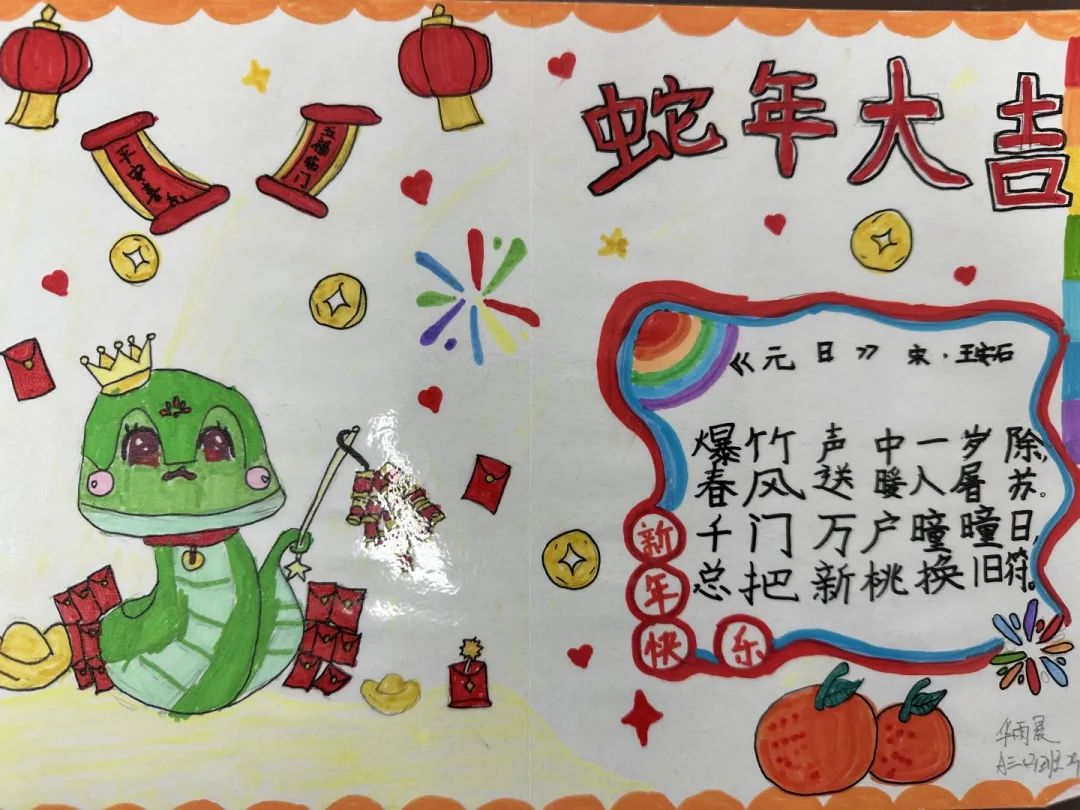 蛇年大吉
平安喜乐
五福临门
《元日》 宋·王安石
爆竹声中一岁除,
春风送暖入屠苏。
千门万户曈曈日,
总把新桃换旧符。
新年快乐
华雨晨